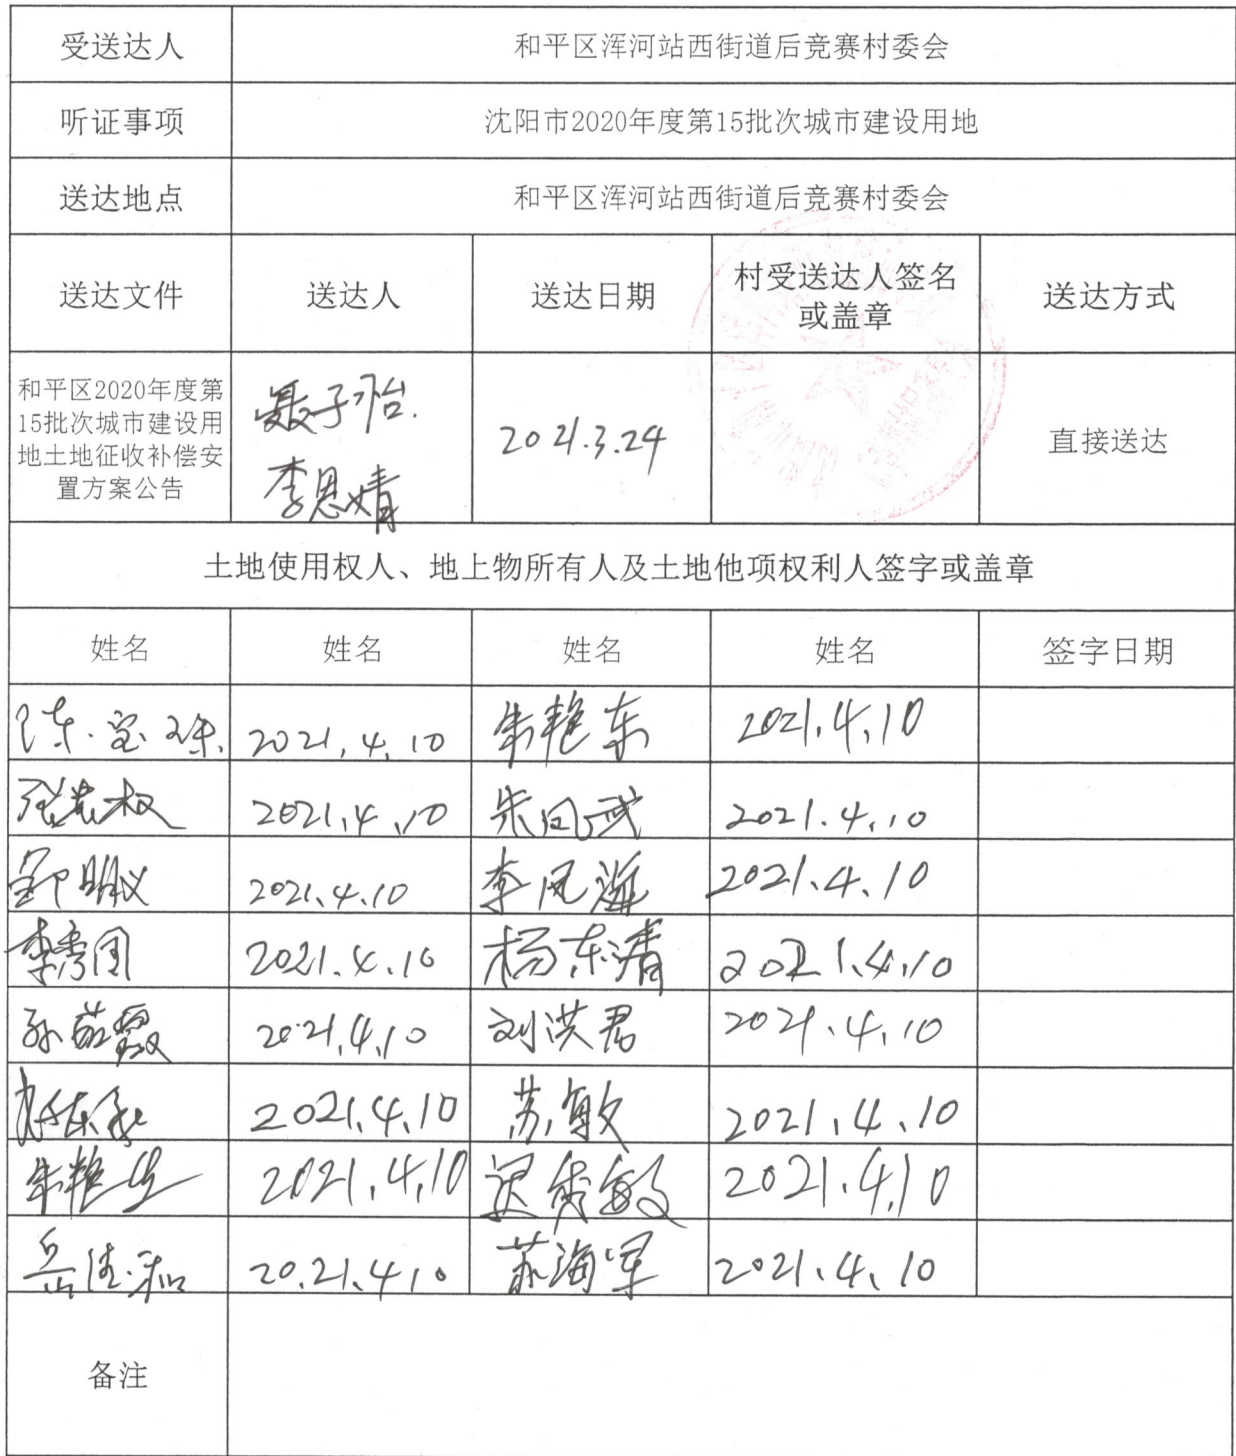 受送达人 和平区浑河站西街道后竞赛村委会
听证事项 沈阳市2020年度第15批次城市建设用地
送达地点 和平区浑河站西街道后竞赛村委会
送达文件 送达人 送达日期 村受送达人签名
或盖章 送达方式
和平区2020年度第
15批次城市建设用
地土地征收补偿安
置方案公告
聂子怡.
李恩婧
2021.3.24
直接送达
土地使用权人、地上物所有人及土地他项权利人签字或盖章
姓名 姓名 姓名 姓名 签字日期
2021.4.10 朱艳东 2021.4.10
2021.4.10 朱凤武 2021.4.10
2021.4.10 李凤海 2021.4.10
李秀国 2021.4.10 杨东清 2021.4.10
2021.4.10 刘洪君 2021.4.10
2021.4.10 苏敏 2021.4.10
2021.4.10 迟秀敏 2021.4.10
2021.4.10 苏海军 2021.4.10
备注